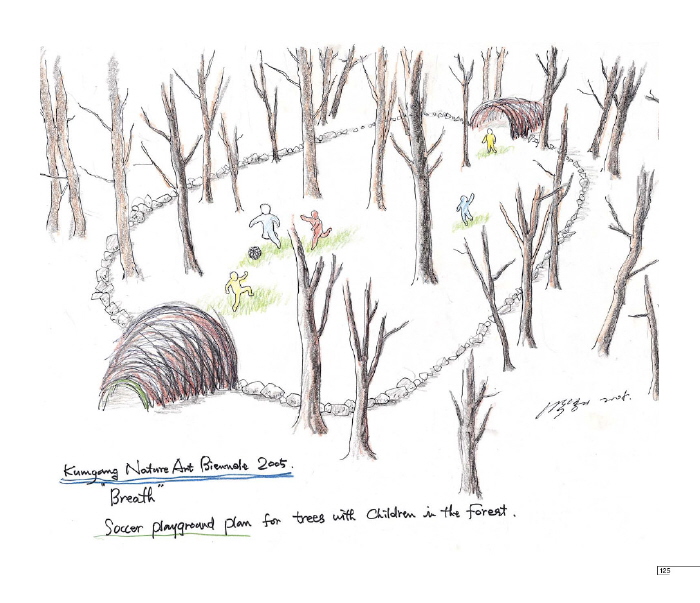 2005.
Kumgang Nature Art Biennale 2005.
"Breath"
Soccer playground plan for trees with Children in the forest.
125